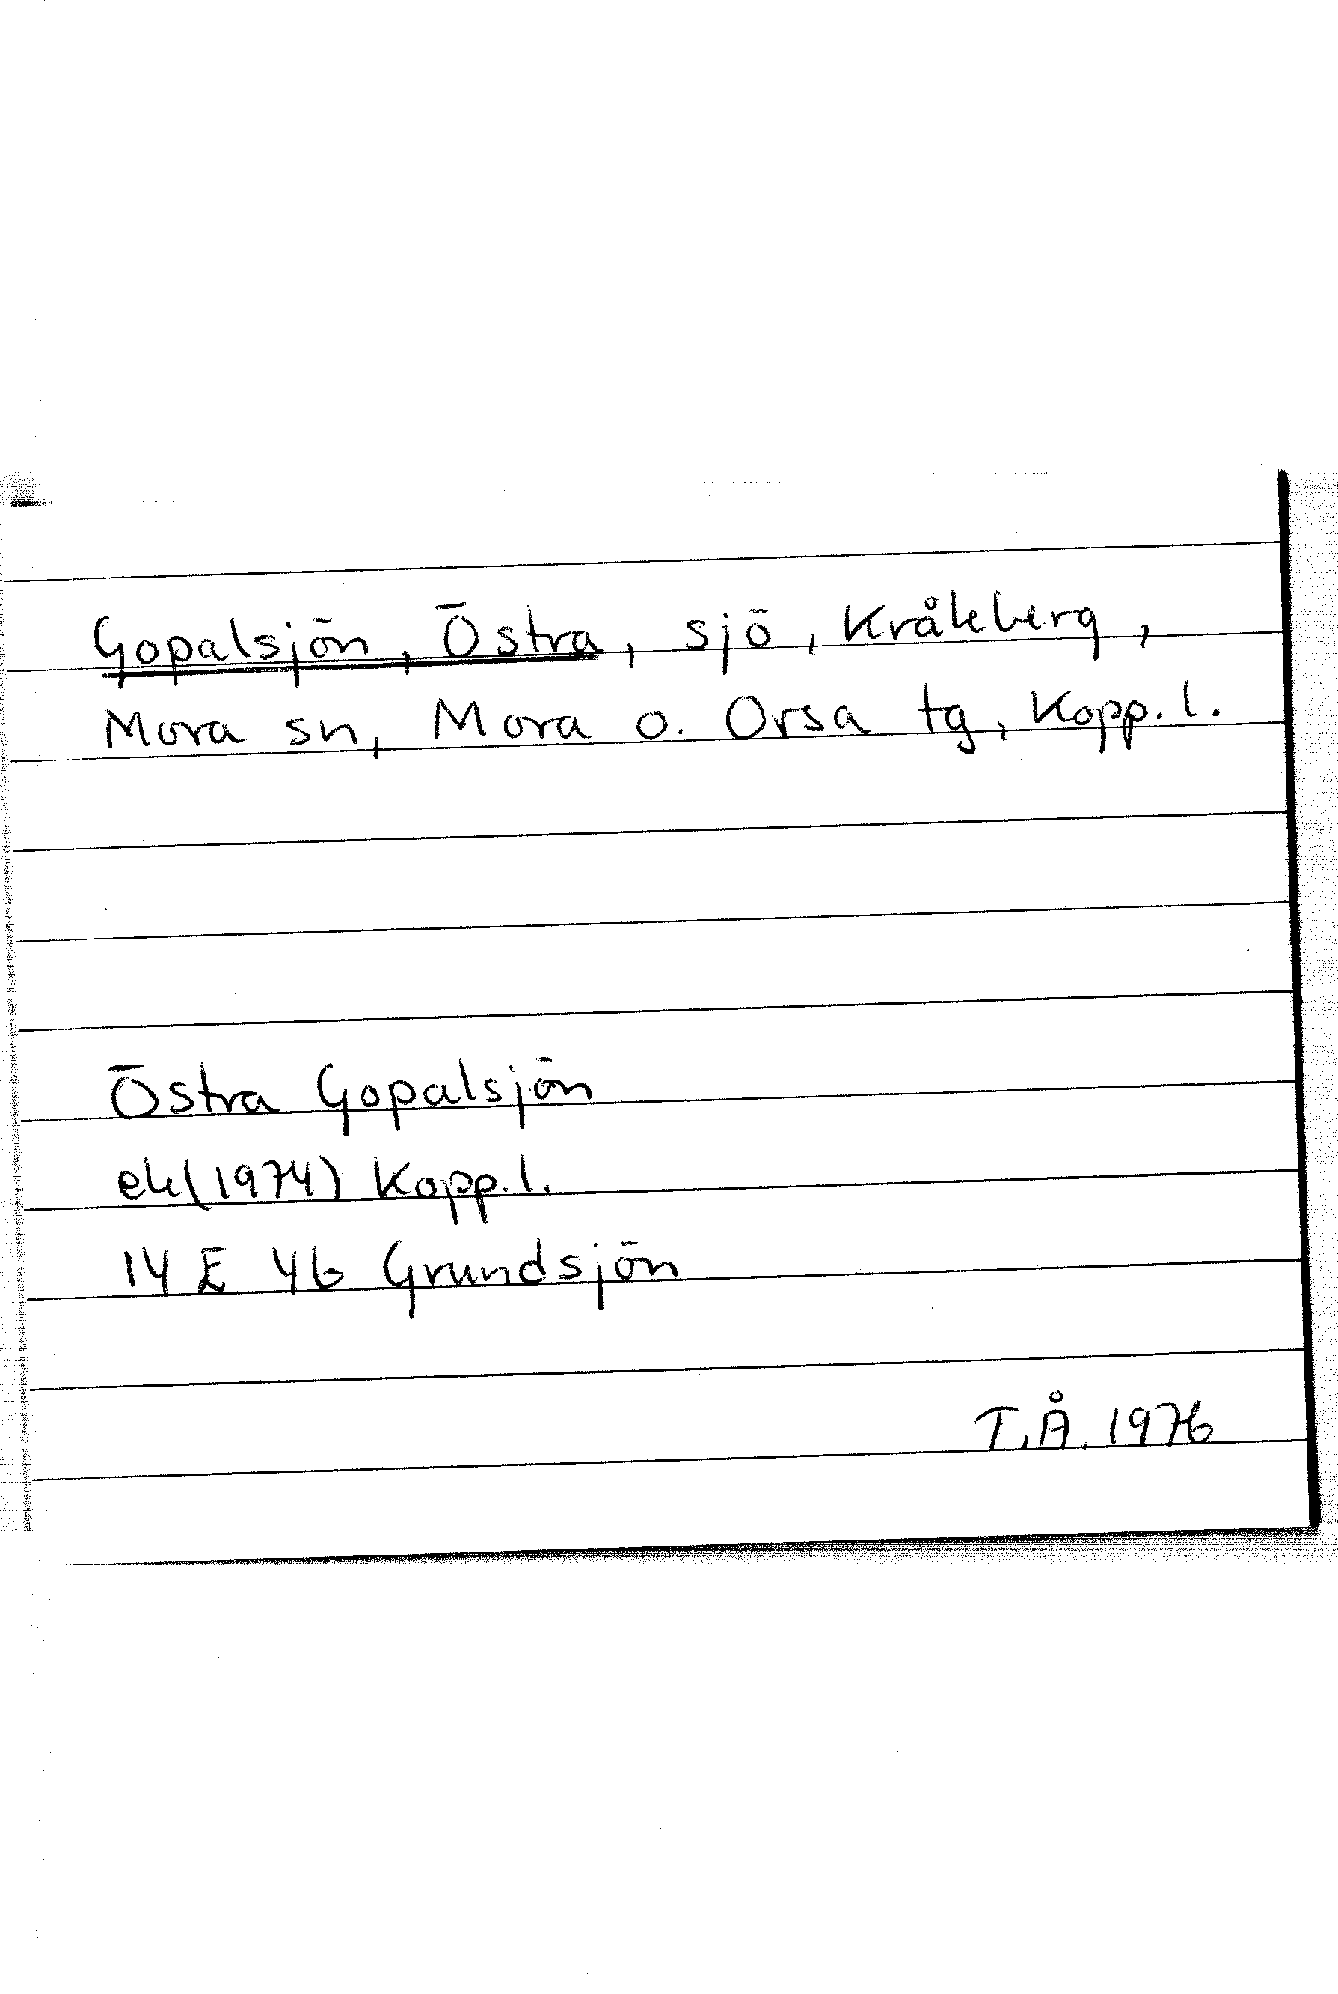 Gopalsjön, Östra, sjö, Kråkberg,
Mora sn, Mora o. Orsa tg, Kopp. l.
Östra Gopalsjön
ek (1974) Kopp. l.
14 E 4b Grundsjön
T.Å. 1976